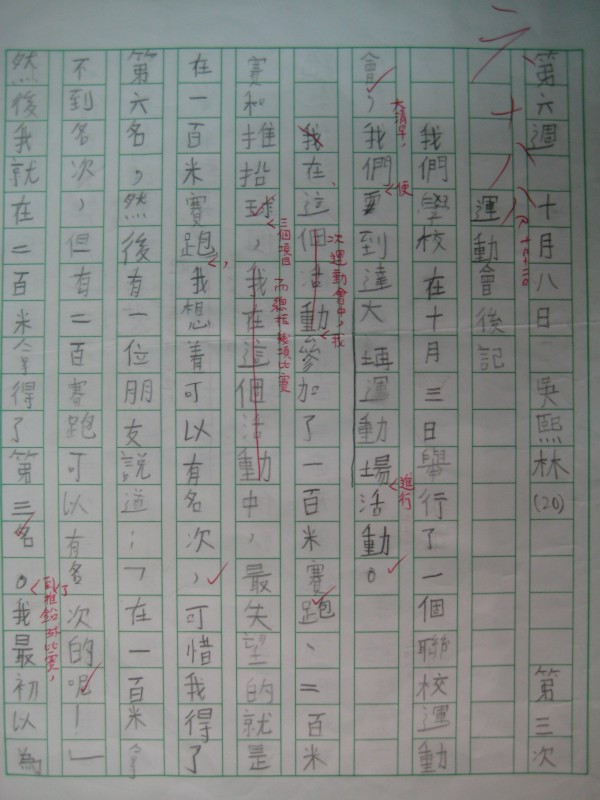 第六週 十月八日 吳熙林(20) 第三次
運動會後記
我們學校在十月三日舉行了一個聯校運動
會，我們要到達大埔運動場活動。
大清早，
便
進行
我在這個活動參加了一百米賽跑、二百米
次運動會中，我
賽和推掐球，我在這個活動中，最失望的就是
三個項目
在一百米賽跑我想着可以有名次，可惜我得了
第六名，然後有一位朋友説道：「在一百米拿
不到名次，但有二百賽跑可以有名次的呢！」
然後我就在二百米拿得了第三名。我最初以為
到推鉛球比賽，